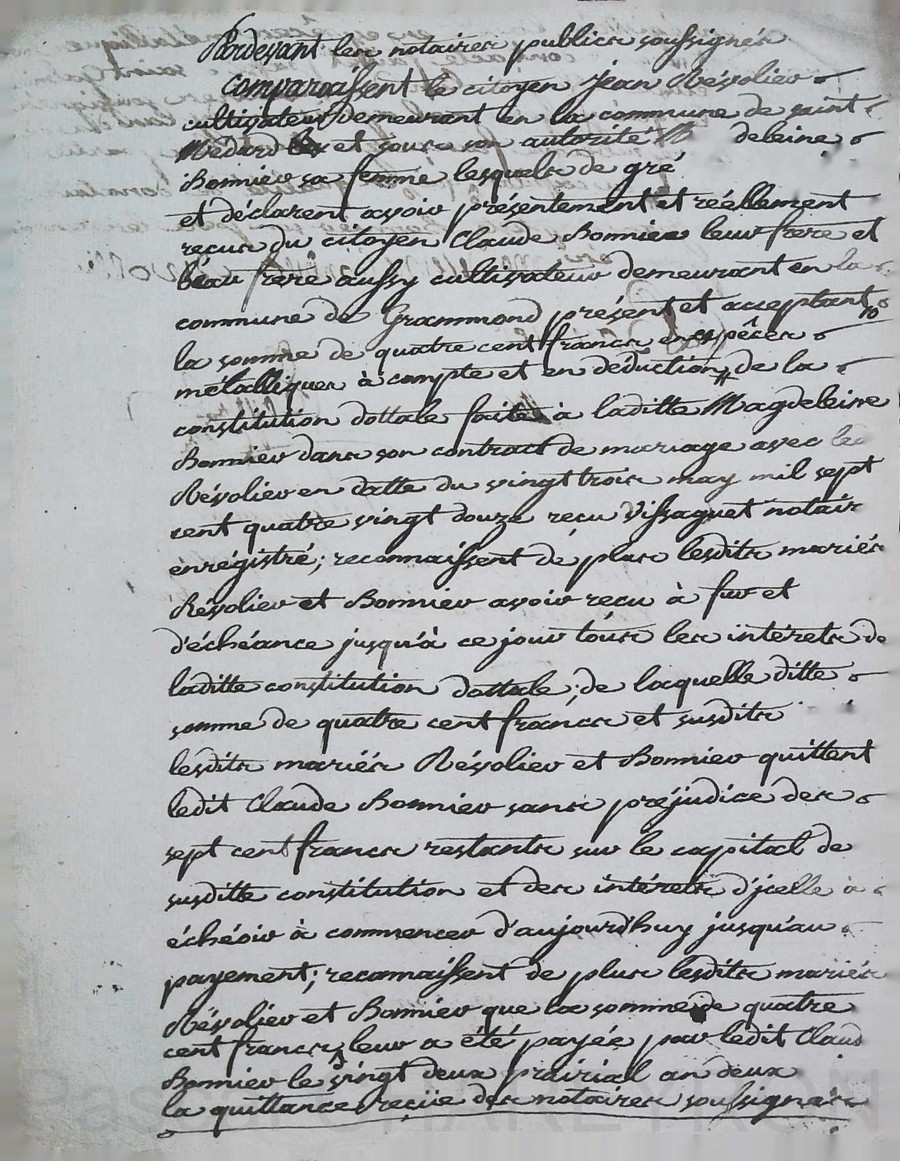 Pardevant les notaires publics soussignés
comparaissent le citoyen Jean Révolier
cultivateur demeurant en la commune de saint
Medard et sous son autorité deleine
Bonnier sa femme lesquels de gré
et déclarent avoir présentement et réellement
reçus du citoyen Claude Bonnier leur frere et
beau frere aussy cultivateur demeurant en la
commune de Grammond présent et acceptant
la somme de quatre cent francs en espêces
métalliques à compte et en déduction de la
constitution dottale faite à laditte Magdeleine
Bonnier dans son contract de mariage avec led
Révolier en datte du vingt trois may mil sept
cent quatre vingt douze reçu Vissaguet notair
enrégistré; reconnaissent de plus lesdits mariés
Révolier et Bonnier avoir reçu à fur et
d'échéance jusqu'à ce jour tous les intérets de
laditte constitution dottale; de laquelle ditte
somme de quatre cent francs et susdits
lesdits mariés Révolier et Bonnier quittent
ledit Claude Bonnier sans préjudice des
sept cent francs restants sur le capital de
susditte constitution et des intérets d'jcelle à
échéoir à commencer d'aujourd'huy jusqu'au
payement; reconnaissent de plus lesdits mariés
Révolier et Bonnier que la somme de quatre
cent francs leur a été payée par ledit Claud
Bonnier le vingt deux prairial an deux
la quittance reçüe des notaires soussignés